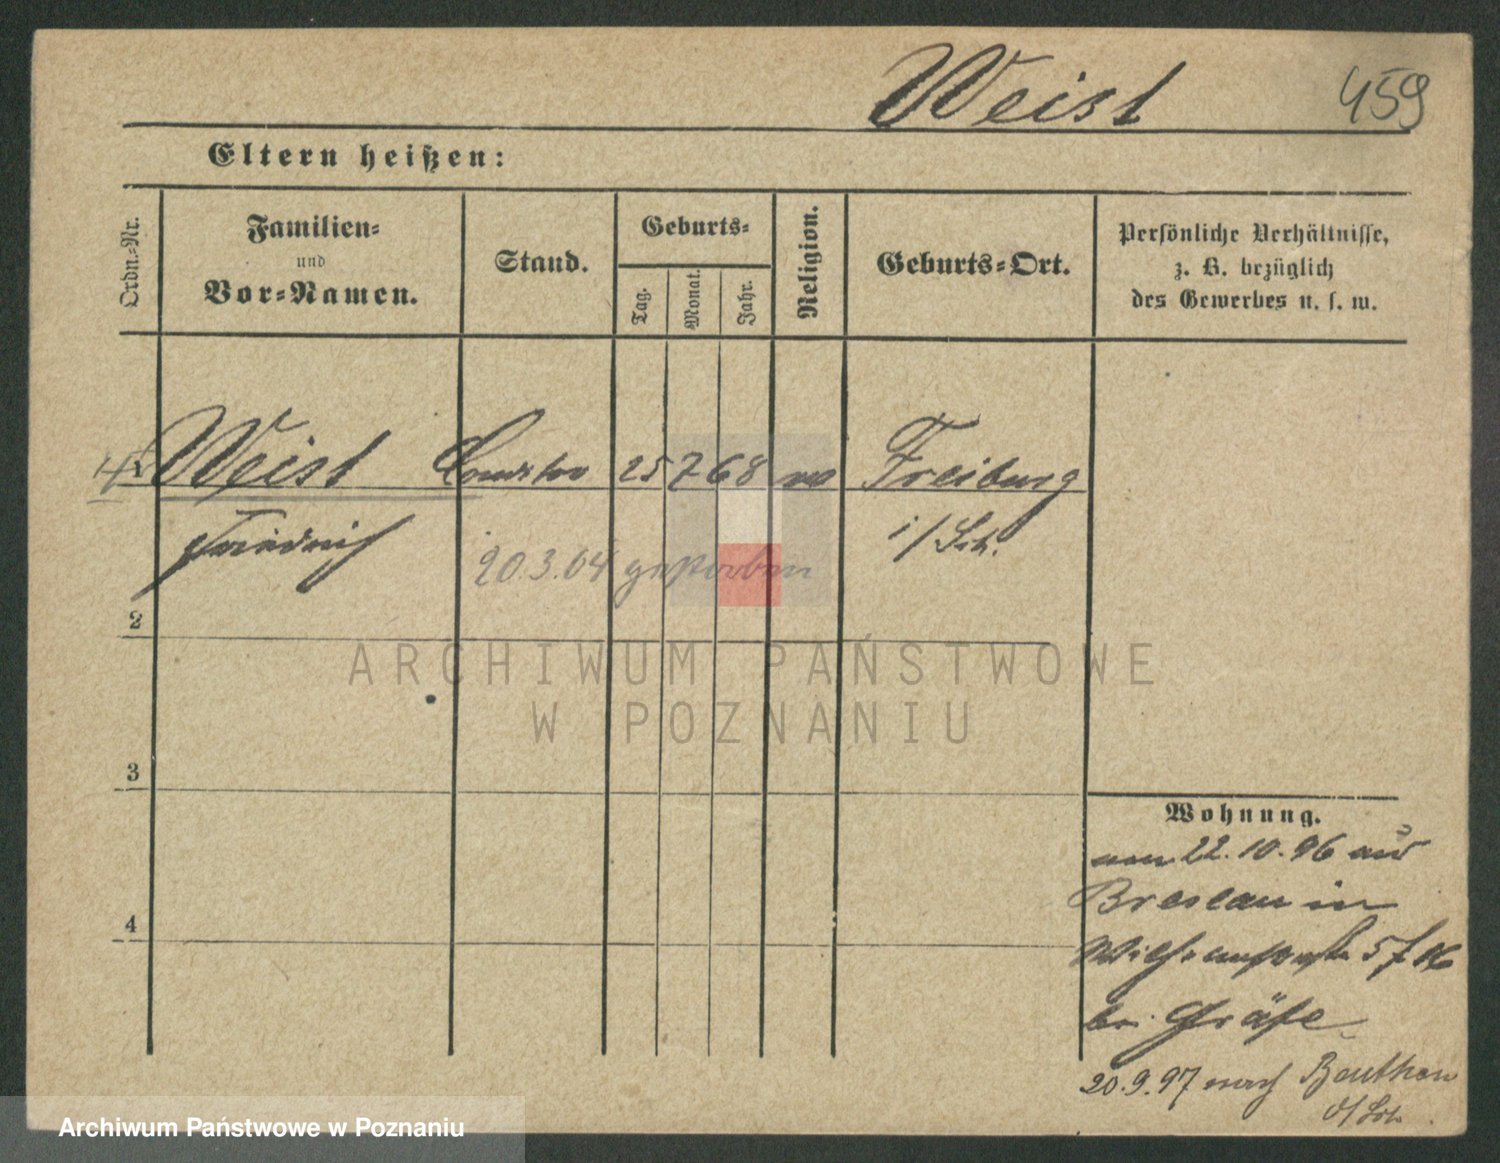 Weist 459
Eltern heißen:
Ordn.-Nr.
Familien-
und
Vor-Namen.
Stand.
Geburts-
Tag.
Monat.
Jahr.
Religion.
Geburts-Ort.
Persönliche Verhältnisse,
z. B. bezüglich
des Gewerbes u. s. w.
Weist Conditor 25 7 68 Freiburg
Friedrich i/Sch.
20.3.04 gestorben
2
3
4
Wohnung.
22.10.96 aus
Breslau in
5
bei Gräfe
20.9.97 nach Beuthen
o/Sch.
ARCHIWUM PAŃSTWOWE
W POZNANIU
Archiwum Państwowe w Poznaniu